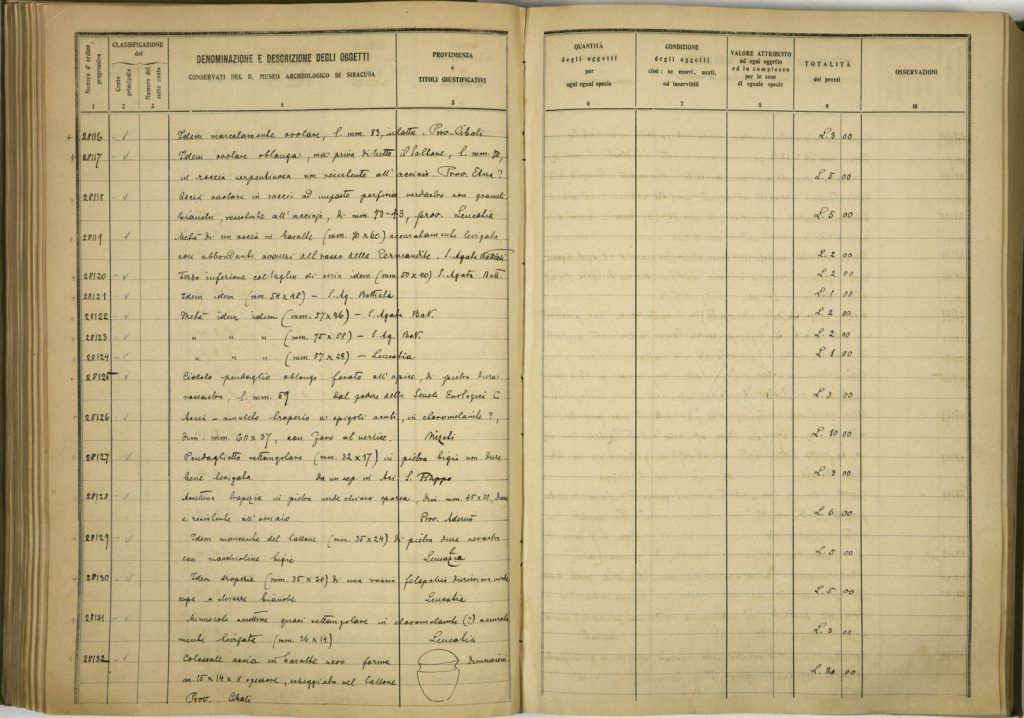 Numero d'ordine progressivo
CLASSIFICAZIONE del
Conto principale
Numero del sotto conto
DENOMINAZIONE E DESCRIZIONE DEGLI OGGETTI
CONSERVATI NEL R. MUSEO ARCHEOLOGICO DI SIRACUSA
PROVENIENZA
o
TITOLI GIUSTIFICATIVI
QUANTITÀ
degli oggetti
per
ogni egual specie
CONDIZIONE
degli oggetti
cioè: se nuovi, usati,
od inservibili
VALORE ATTRIBUITO
ad ogni oggetto
od in complesso
per le cose
di eguale specie
TOTALITÀ
dei prezzi
OSSERVAZIONI
1 2 3 4 5 6 7 8 9 10
28116 Idem marcatamente ovolare, l. mm. 83, intatta. Prov. Cibali L. 3 00
28117 Idem ovolare oblunga, ma priva di tutto il tallone, l. mm. 70,
in roccia serpentinosa non resistente all'acciaio. Prov. Etna? L. 5 00
28118 Ascia ovolare in roccia ad impasto porfirico verdastro con granuli
bianchi, resistente all'acciaio, di mm. 73-43, prov. Leucatia L. 5 00
28119 Metà di un ascia in basalte (mm. 70 x 60) accuratamente levigata,
con abbondanti avanzi del rosso della S. Agata Battiati L. 2 00
28120 Terzo inferiore col taglio di ascia idem (mm. 50 x 40) S. Agata Batt. L. 2 00
28121 Idem idem (mm. 54 x 48) – S. Ag. Battiata L. 1 00
28122 Metà idem idem (mm. 57 x 46) – S. Agata Bat. L. 2 00
28123 " " " (mm. 75 x 58) – S. Ag. Bat. L. 2 00
28124 " " " (mm. 57 x 28) – Leucatia L. 1 00
28125 Ciottolo pendaglio oblungo forato all'apice, di pietra dura
rossastra, l. mm. 59 dal podere della Scuola Enologica C. L. 3 00
28126 Ascia-amuleto trapezio a spigoli acuti, in cloromelanite?,
dim. mm. 60 x 37, con foro al vertice. L. 10 00
28127 Pendaglietto rettangolare (mm. 32 x 17) in pietra bigia non dura
bene levigata. Da un sep. in Aci S. Filippo L. 3 00
28128 Ascettina trapezia in pietra verde chiaro sparsa, dim. mm. 45 x 28, dura
e resistente all'acciaio Prov. Adernò L. 6 00
28129 Idem mancante del tallone (mm. 35 x 24) di pietra dura nerastra
con macchioline bigie Leucatia L. 5 00
28130 Idem trapezia (mm. 35 x 20) di una roccia felspatica durissima verde
cupa a chiazze bianche Leucatia L. 5 00
28131 Minuscola ascettina quasi rettangolare in cloromelanite (?) accurata
mente levigata (mm. 26 x 14) Leucatia L. 3 00
28132 Colossale ascia in basalte nero forma dimensioni
cm. 15 x 14 x 8 spessore, scheggiata nel tallone L. 20 00
Prov. Cibali